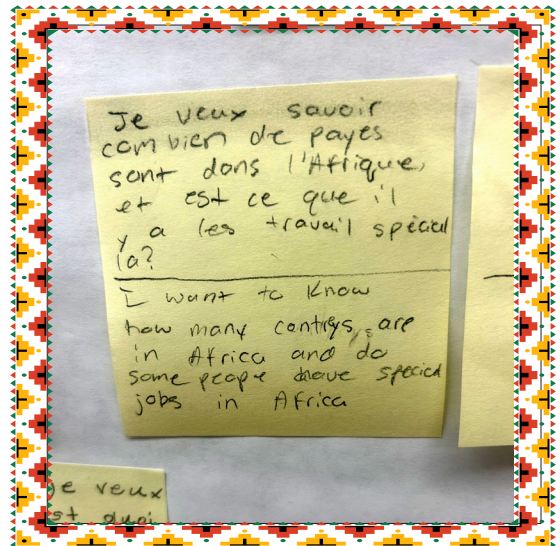 Je veux savoir
combien de payes
sont dans l'Afrique,
et est ce que il
y a les travail spécial
la?
I want to know
how many contrys, are
in Africa and do
some people have special
jobs in Africa
je veux
st quoi